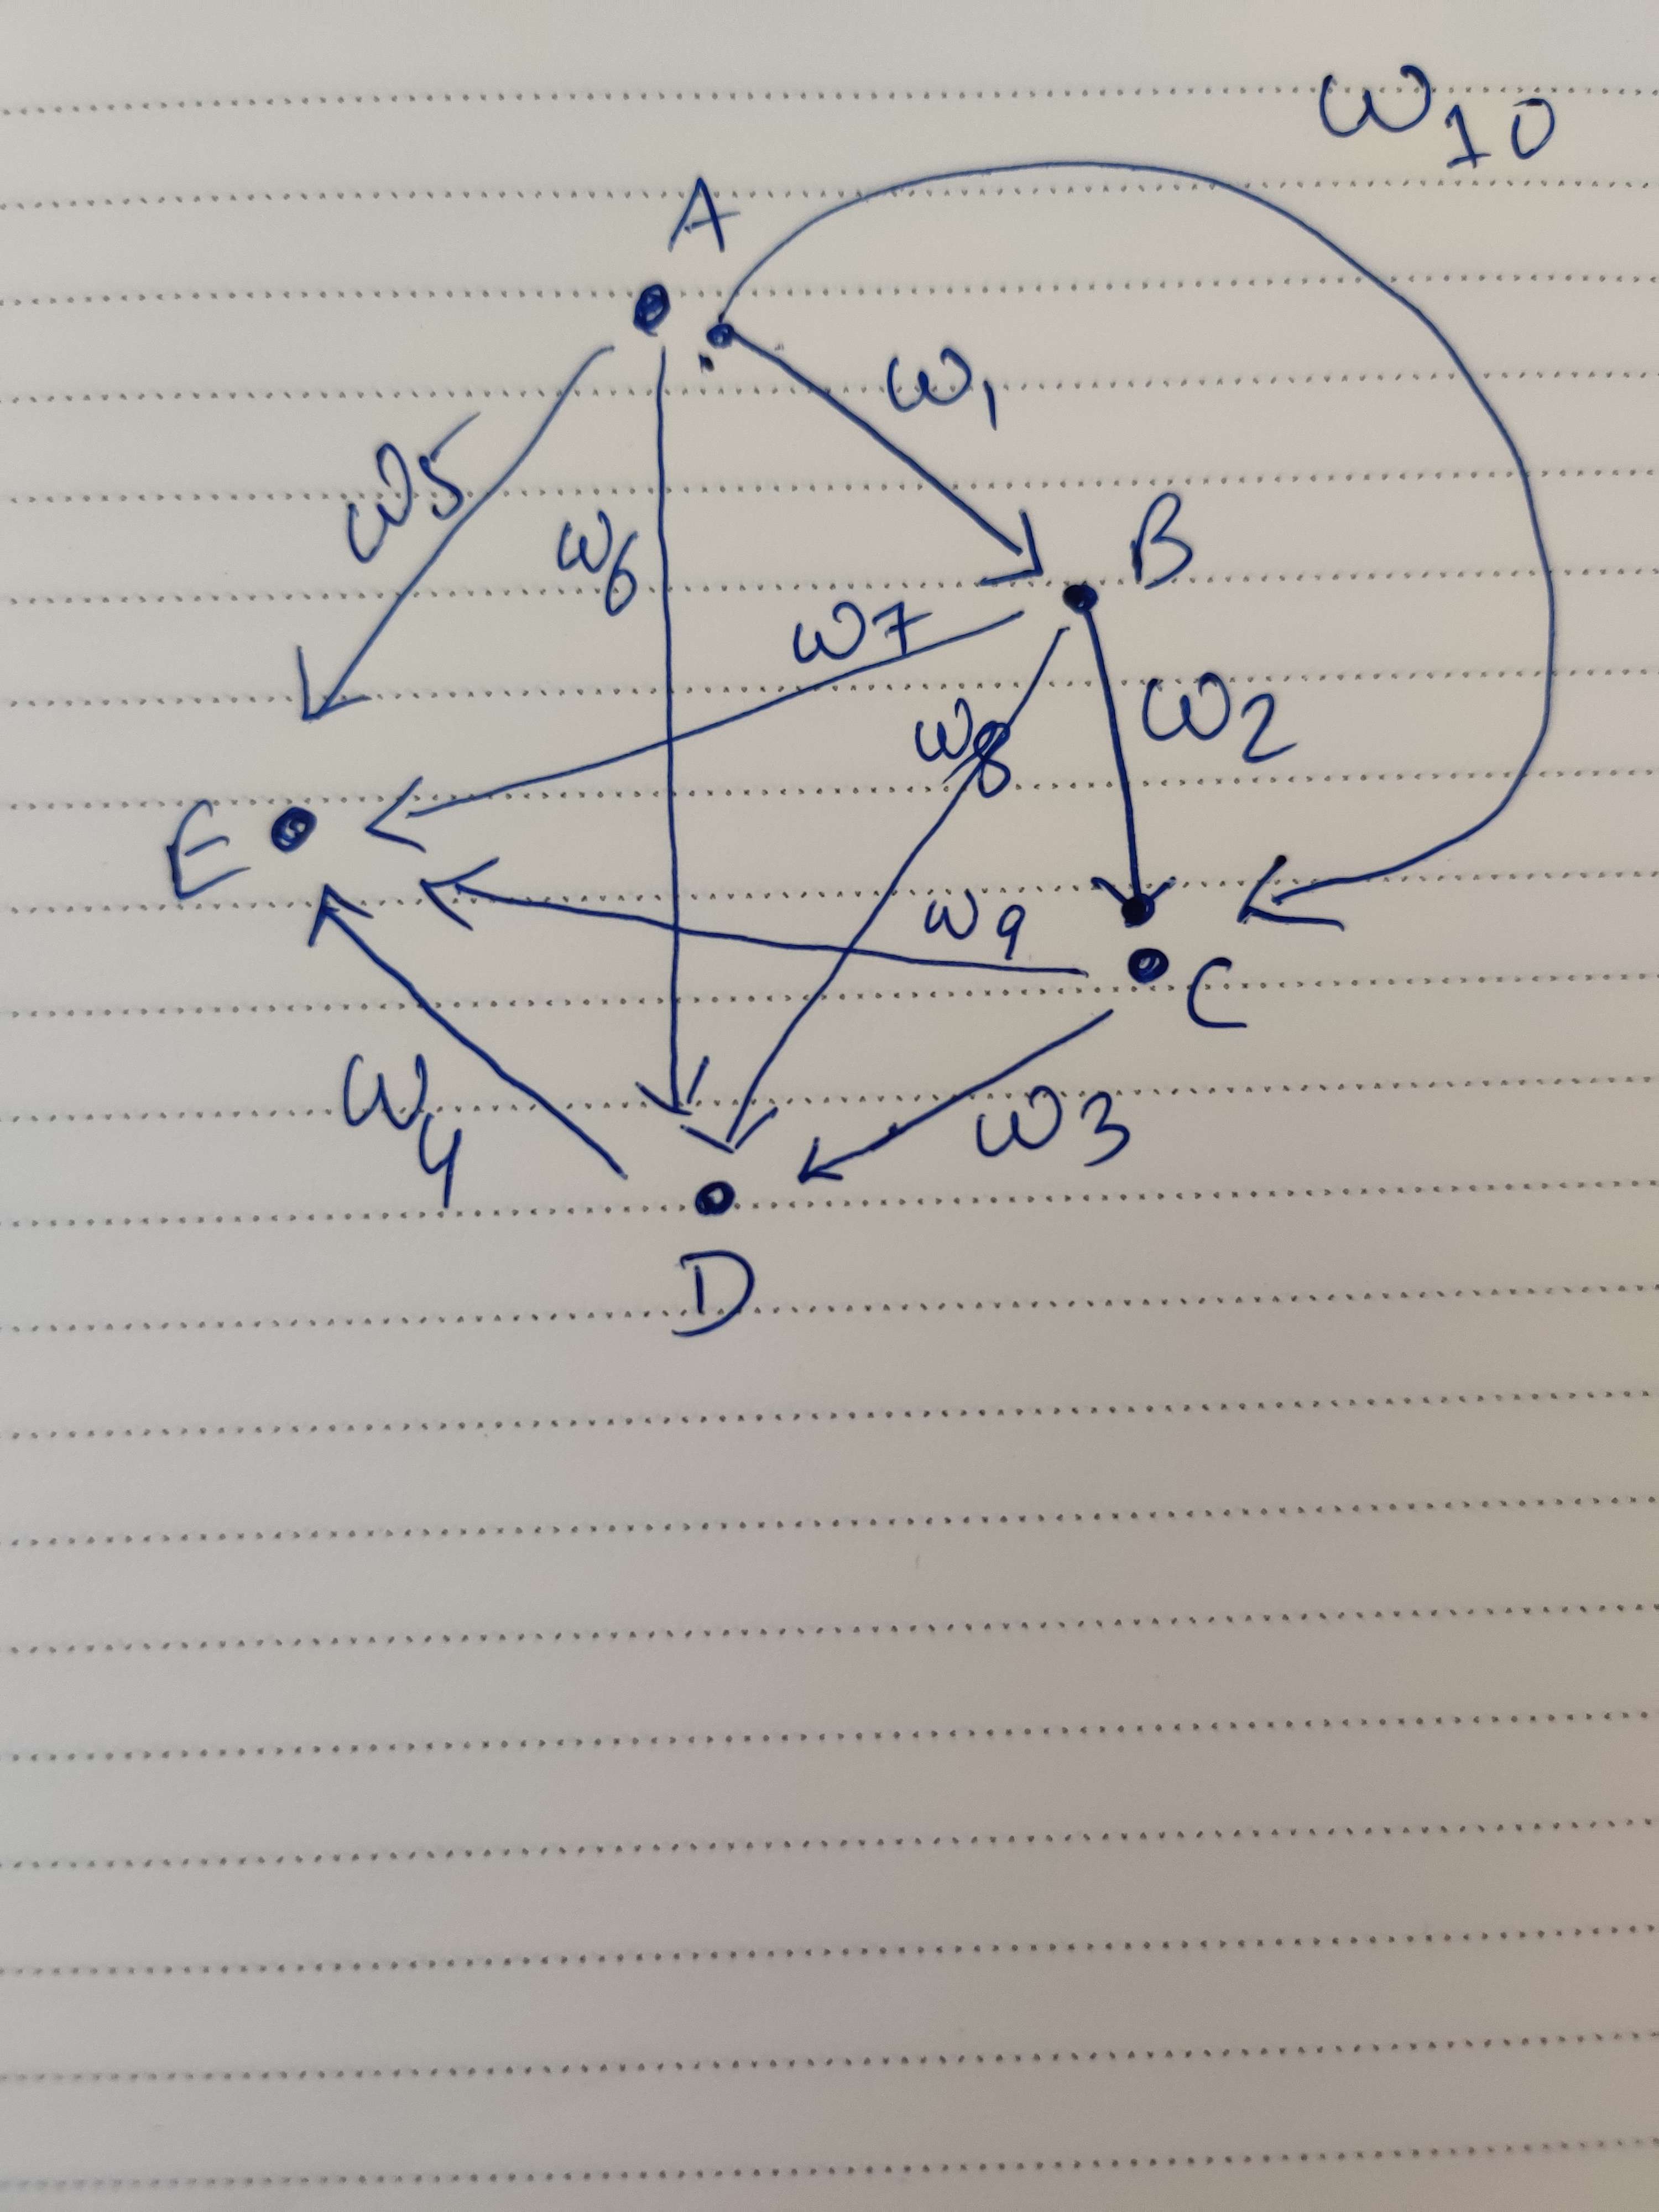 ω10
A
ω1
ω5
ω6
B
ω7
ω8
ω2
E
ω9
C
ω4
ω3
D